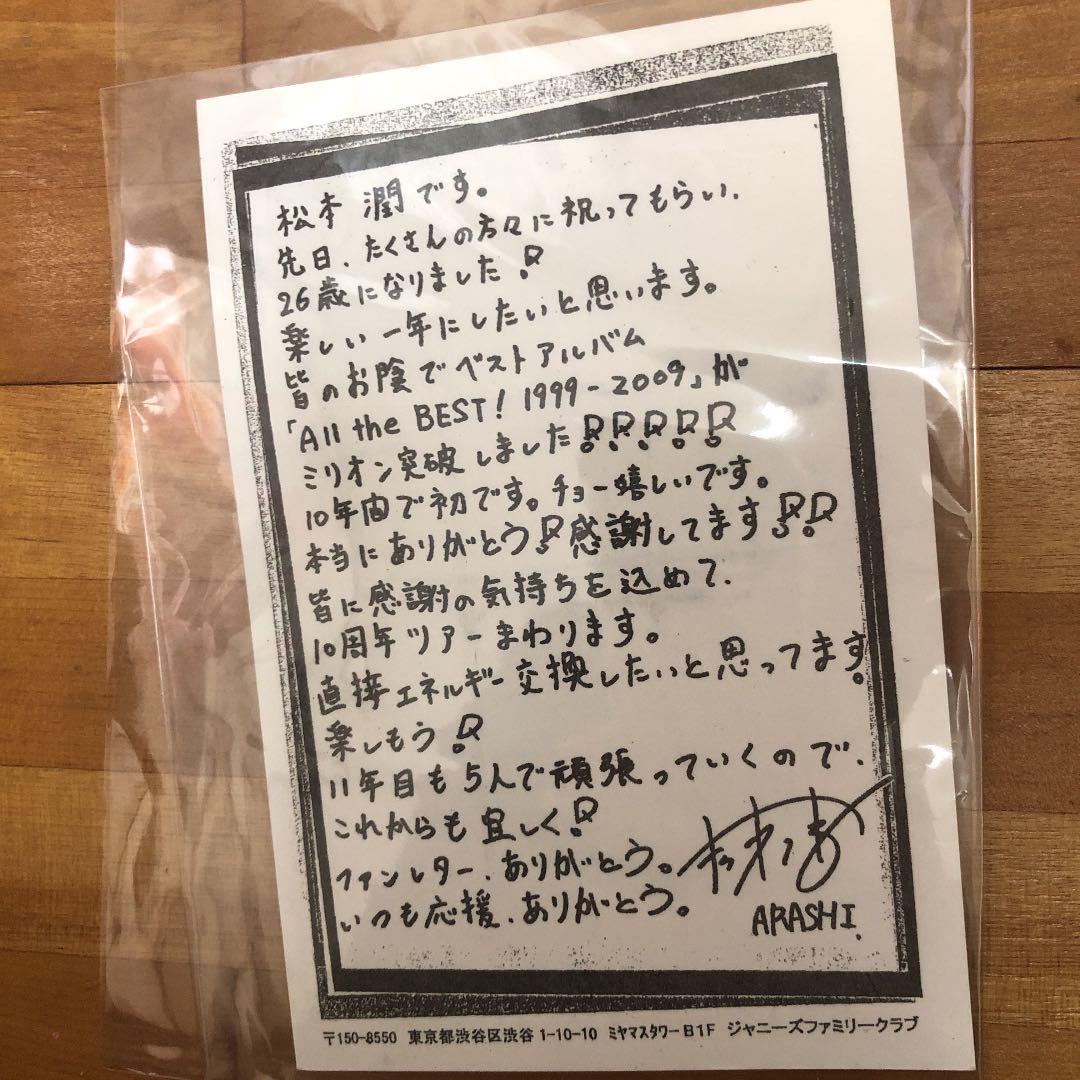 松本 潤です。
先日、たくさんの方々に祝ってもらい、
26歳になりました!
楽しい一年にしたいと思います。
皆のお陰でベストアルバム
「All the BEST! 1999-2009」が
ミリオン突破しました!!!!!
10年間で初です。チョー嬉しいです。
本当にありがとう!感謝してます!!
皆に感謝の気持ちを込めて、
10周年ツアーまわります。
直接エネルギー交換したいと思ってます。
楽しもう!
11年目も5人で頑張っていくので、
これからも宜しく!
ファンレター、ありがとう。
いつも応援、ありがとう。
ARASHI.
〒150-8550 東京都渋谷区渋谷1-10-10 ミヤマスタワーB1F ジャニーズファミリークラブ